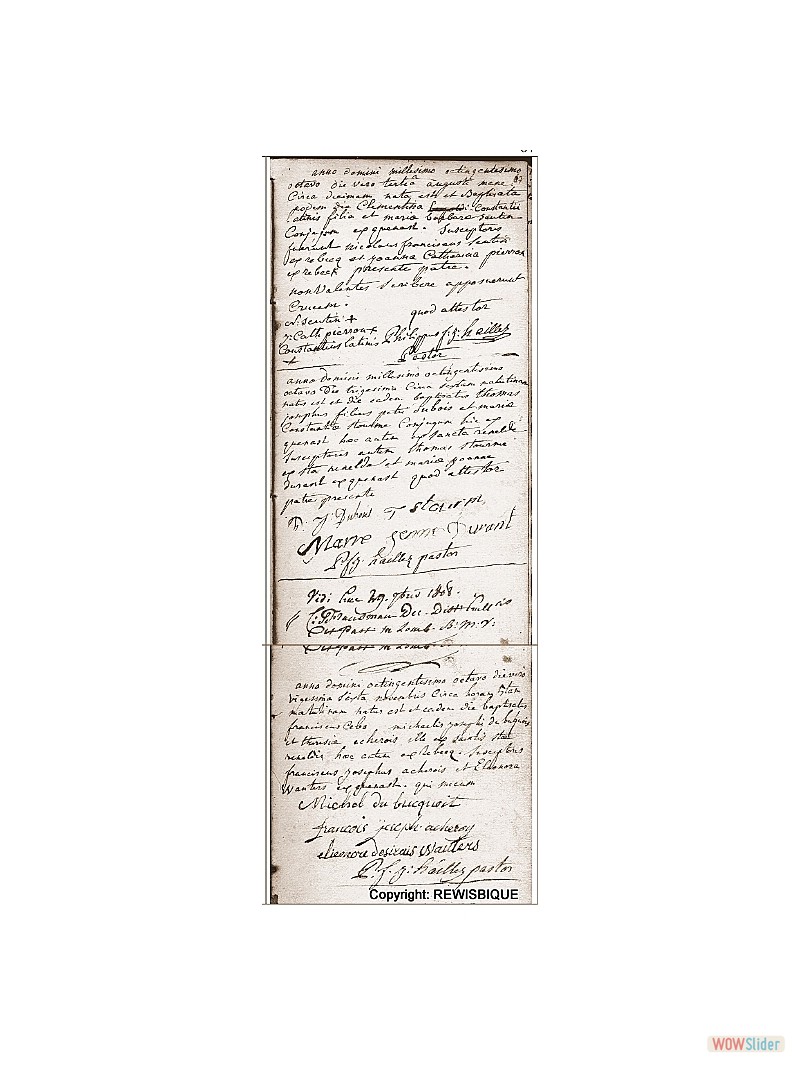 anno domini millesimo octingentesimo
octavo die vero tertiâ augusti mane
Circa decimam nata est et Baptisata
eodem die Clementina Constantii
latinis filia et maria barbara seutin
Conjugum ex quenast. Susceptoris
fuerunt nicolaus franciscus seutin
ex rebecq et joanna Catharina pierron
ex rebeck presente patre.
non Valentes scribere apposuerunt
Crucem.
quod attestor
N. seutin +
j: Cath pierron +
Constantius latinis Philippus f: j: haillez
+ Pastor
anno Domini millesimo octingentesimo
octavo Die trigesima Circa sextam matutinam
natus est et die eadem baptisatus thomas
josephus filius petri dubois et maria
Constantia Conjugum hic ex
quenast hoc autem ex sancta renelde
Susceptores autem thomas stourme
ex sta renelda et maria joanna
durant ex quenast quod attestor
patre presente
P. J. Dubois T stourm
Marre Jenne Durant
P. f. j. haillez pastor
Vidi hac 29. 9bris 1808.
Dec. Dist.
B: M. V.
anno domini octingentesimo octavo die vero
vigesima sexta novembris Circa horam
matutinam natus est et eadem die baptisatus
franciscus michaelis josephi du buquois
et theresia acherois ille ex
reneldis hac autem ex rebecq. Susceptoris
franciscus josephus acherois et Eleonora
Wauters ex quenast. qui mecum
Michel du bucquoit
francois joseph acheroy
eleonore desirais Wautters
P. f. j: haillez pastor
Copyright: REWISBIQUE
WOWSlider